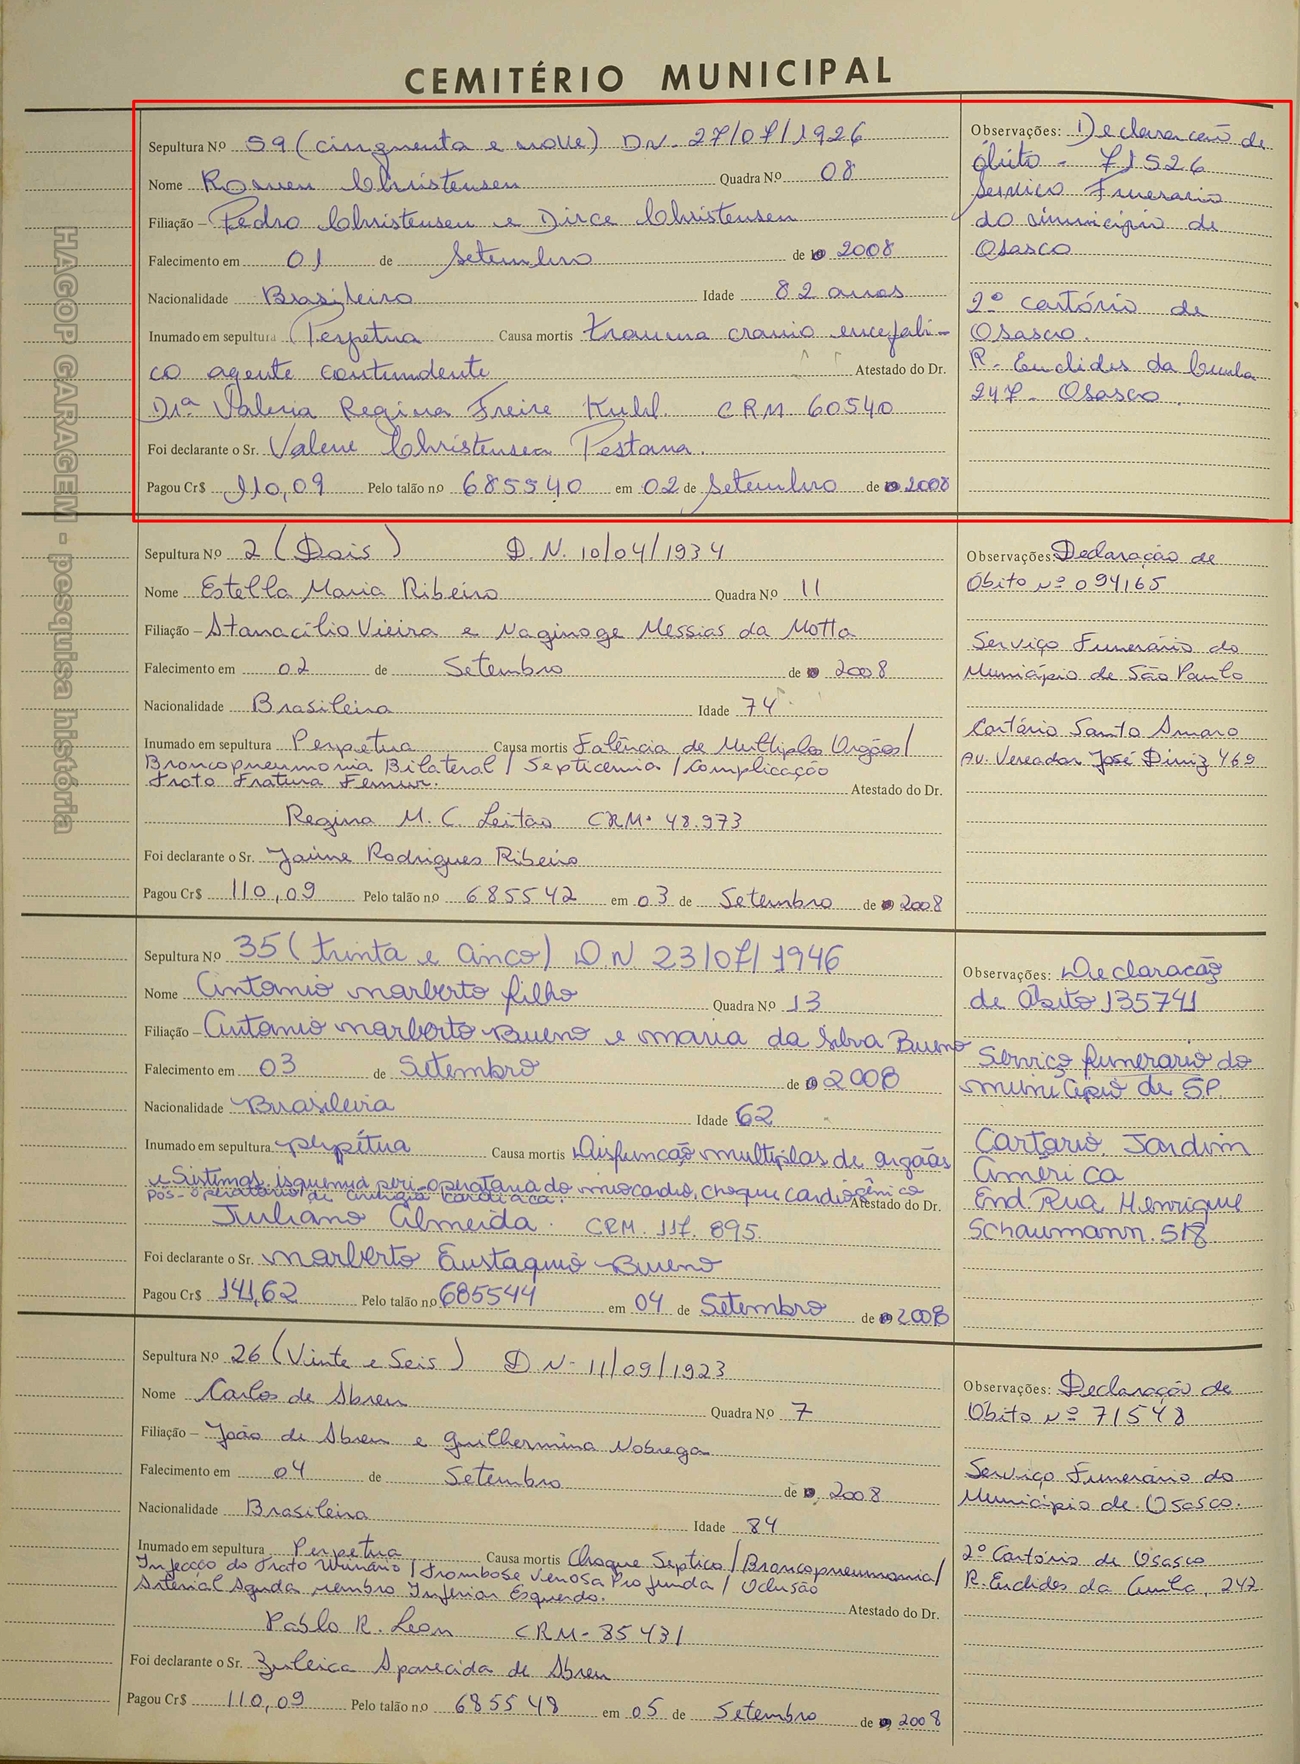 CEMITÉRIO MUNICIPAL
Sepultura Nº 59 (cinquenta e nove) DN - 27/07/1926
Nome Romeu Christensen Quadra Nº 08
Filiação - Pedro Christensen e Dirce Christensen
Falecimento em 01 de Setembro de 2008
Nacionalidade Brasileiro Idade 82 anos
Inumado em sepultura Perpetua Causa mortis trauma cranio encefali-
co agente contundente Atestado do Dr.
Drª Valeria Regina Freire Kuhl. CRM 60540
Foi declarante o Sr. Valene Christensen Pestana.
Pagou Cr$ 110,09 Pelo talão nº 685540 em 02 de Setembro de 2008
Observações: Declaração de
óbito - 71526
Serviço Funerario
do município de
Osasco
2º cartório de
Osasco.
R. Euclides da Cunha
247 - Osasco.
Sepultura Nº 2 (Dois) D.N. 10/04/1934
Nome Estella Maria Ribeiro Quadra Nº 11
Filiação - Atanacílio Vieira e Naginoge Messias da Motta
Falecimento em 02 de Setembro de 2008
Nacionalidade Brasileira Idade 74
Inumado em sepultura Perpetua Causa mortis Falência de Multiplos Orgãos /
Broncopneumonia Bilateral / Septicemia / Complicação
Trato Fratura Femur.
Atestado do Dr.
Regina M. C. Leitão CRM. 48.973
Foi declarante o Sr. Jaime Rodrigues Ribeiro
Pagou Cr$ 110,09 Pelo talão nº 685542 em 03 de Setembro de 2008
Observações: Declaração de
Óbito nº 094165
Serviço Funerário do
Município de São Paulo
Cartório Santo Amaro
Av. Vereador José Diniz 469
Sepultura Nº 35 (trinta e cinco) D.N. 23/07/1946
Nome Antonio Norberto filho Quadra Nº 13
Filiação - Antonio Norberto Bueno e Maria da Silva Bueno
Falecimento em 03 de Setembro de 2008
Nacionalidade Brasileira Idade 62
Inumado em sepultura perpétua Causa mortis Disfunção multiplas de orgãos
e Sistemas, isquemia peri-operatoria do miocardio, choque cardiogênico
pós-operatório de cirurgia cardiaca Atestado do Dr.
Juliano Almeida. CRM. 117.895.
Foi declarante o Sr. Norberto Eustaquio Bueno
Pagou Cr$ 141,62 Pelo talão nº 685544 em 04 de Setembro de 2008
Observações: Declaração
de Óbito 135741
Serviço funerario do
municipio de SP.
Cartorio Jardim
America
End. Rua Henrique
Schaumann. 518
Sepultura Nº 26 (Vinte e Seis) D N - 11/09/1923
Nome Carlos de Abreu Quadra Nº 7
Filiação - João de Abreu e Guilhermina Nobrega
Falecimento em 04 de Setembro de 2008
Nacionalidade Brasileiro Idade 84
Inumado em sepultura Perpetua Causa mortis Choque Septico / Broncopneumonia /
Infecção do Trato Urinário / Trombose Venosa Profunda / Oclusão
Arterial Aguda membro Inferior Esquerdo.
Atestado do Dr.
Pablo R. Leon CRM - 85431
Foi declarante o Sr. Zuleica Aparecida de Abreu
Pagou Cr$ 110,09 Pelo talão nº 685548 em 05 de Setembro de 2008
Observações: Declaração de
Óbito nº 71548
Serviço Funerário do
Município de Osasco.
2º Cartório de Osasco
R. Euclides da Cunha, 247
HAGOP GARAGEM - pesquisa história